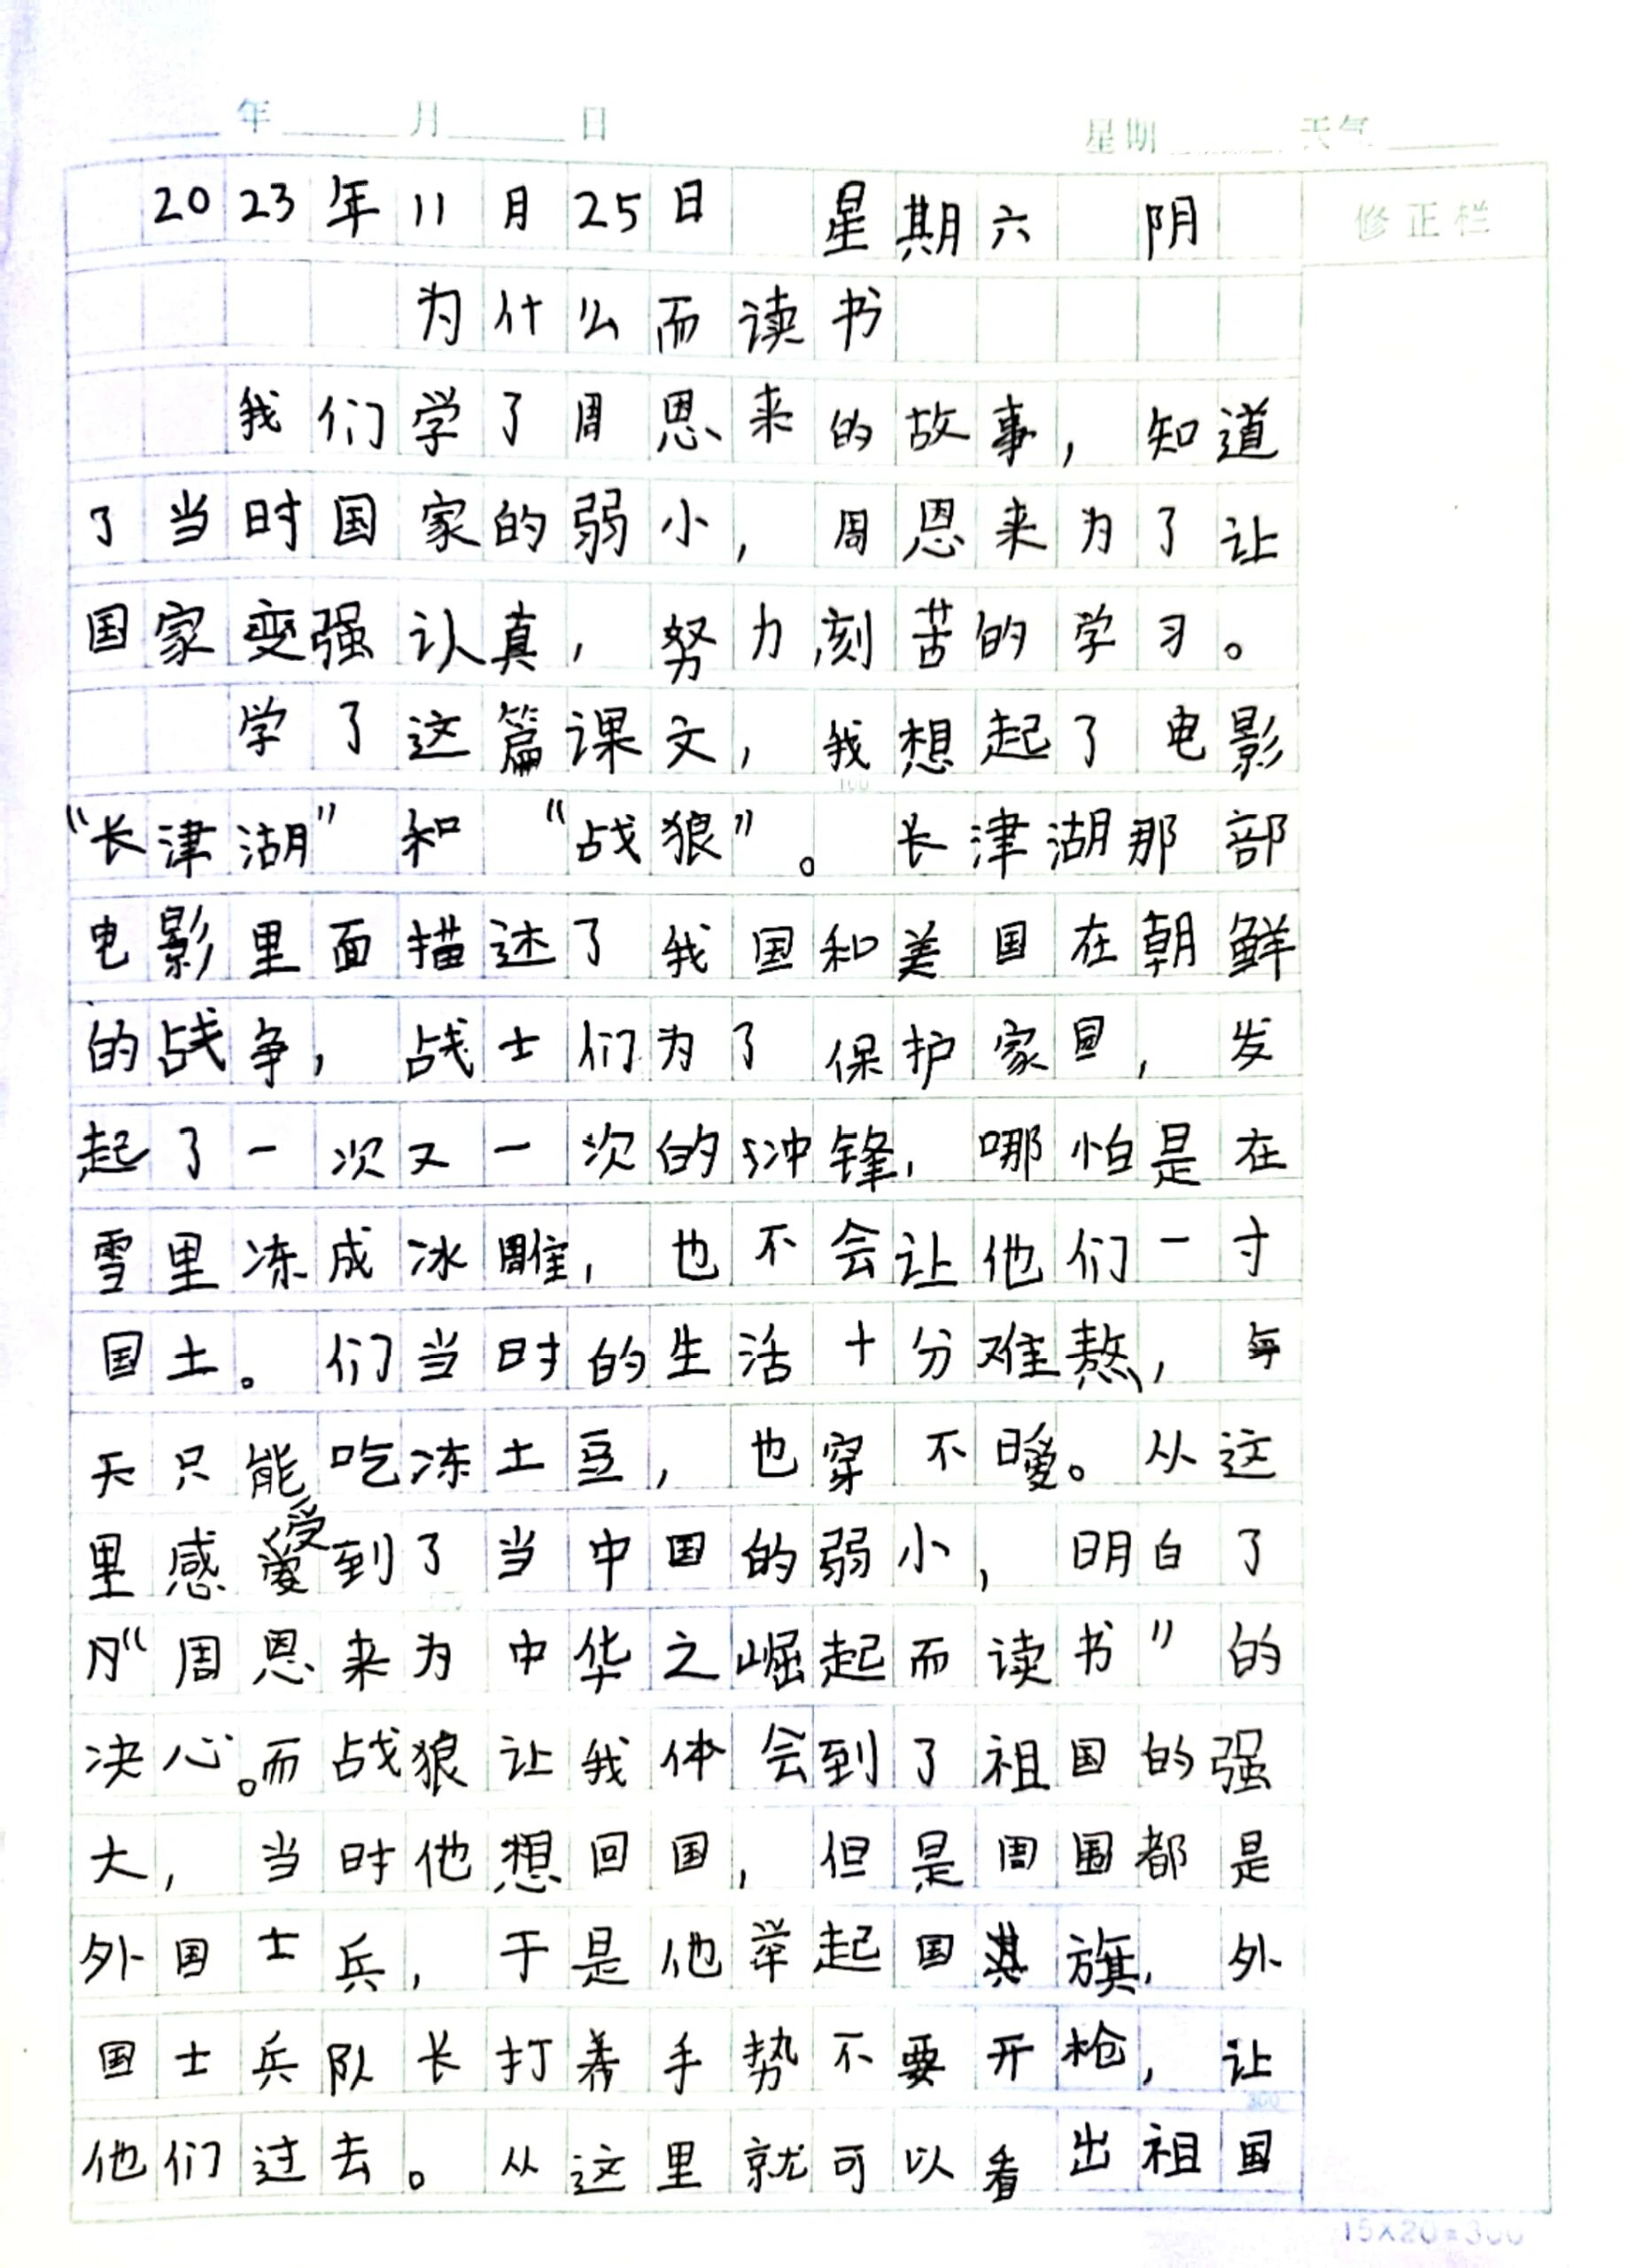 年 月 日 星期 天气
2023年11月25日 星期六 阴
修正栏
为什么而读书
我们学了周恩来的故事，知道
了当时国家的弱小，周恩来为了让
国家变强认真，努力刻苦的学习。
学了这篇课文，我想起了电影
“长津湖”和“战狼”。长津湖那部
100
电影里面描述了我国和美国在朝鲜
的战争，战士们为了保护家国，发
起了一次又一次的冲锋，哪怕是在
雪里冻成冰雕，也不会让他们一寸
国土。们当时的生活十分难熬，每
天只能吃冻土豆，也穿不暖。从这
里感受到了当中国的弱小，明白了
“周恩来为中华之崛起而读书”的
决心。而战狼让我体会到了祖国的强
大，当时他想回国，但是周围都是
外国士兵，于是他举起国旗，外
国士兵队长打着手势不要开枪，让
300
他们过去。从这里就可以看出祖国
15×20=300